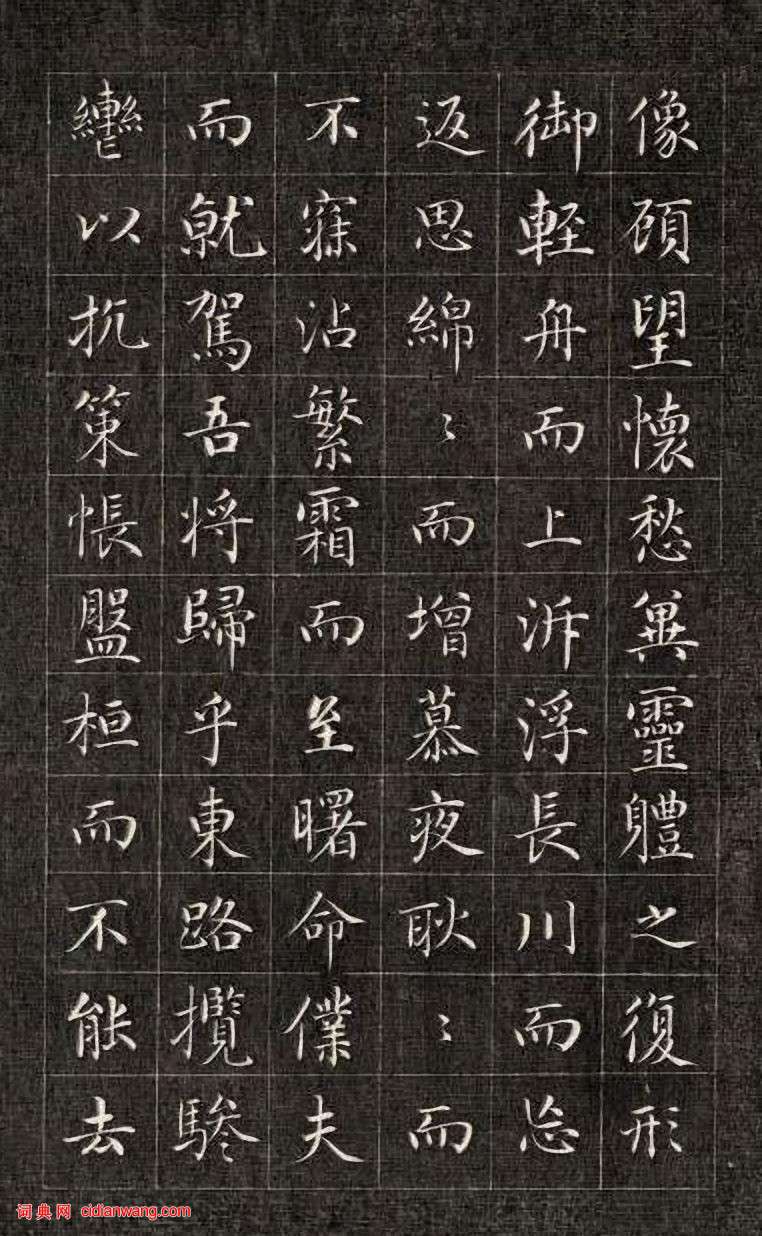 像頋望懷愁兾靈體之復形
御輊舟而上泝浮長川而忘
返思綿〻而增慕夜耿〻而
不寐沾繁霜而至曙命僕夫
而就駕吾将歸乎東路攬騑
轡以抗策悵盤桓而不能去
词典网 cidianwang.com